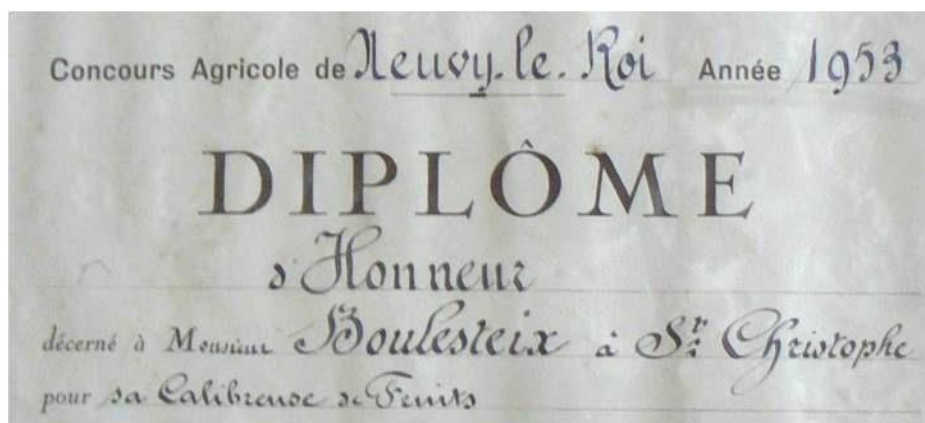 Concours Agricole de Neuvy. le. Roi Année 1953
DIPLÔME
d'Honneur
décerné à Monsieur Boulesteix à St Christophe
pour sa Calibreuse de Fruits